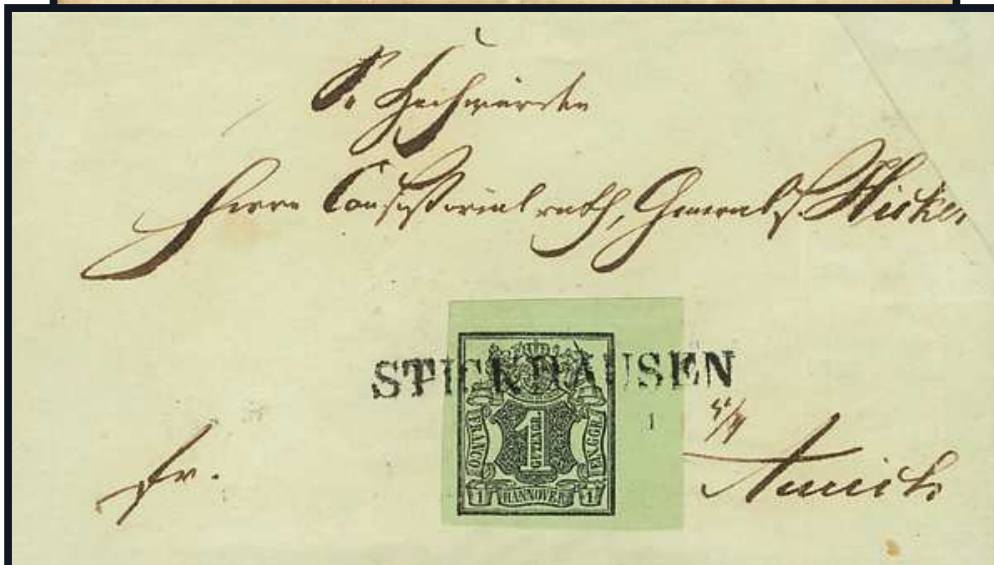 Sr Hochwürden
Herrn Consistorialrath, Generals.
STICKHAUSEN
FRANCO
1
GUTENGR.
EIN GGR.
1
HANNOVER
1
1
fr.
Aurich